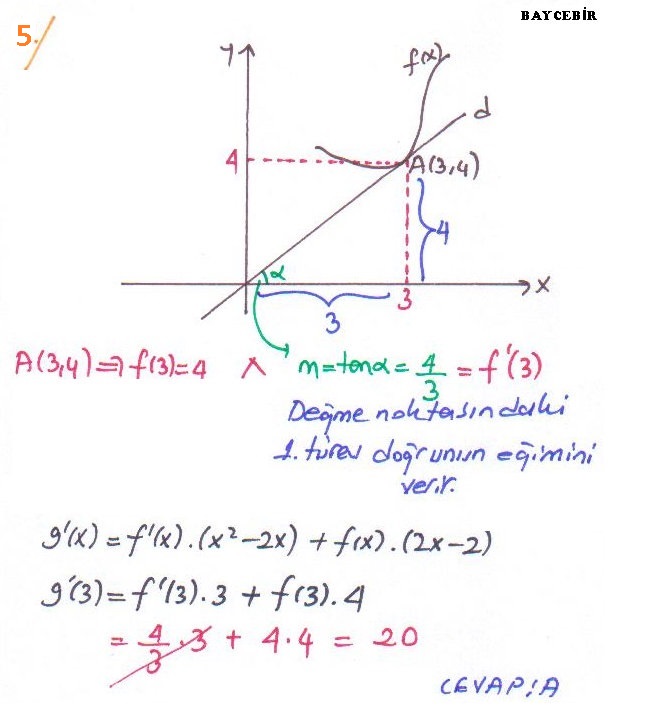 BAYCEBİR
5.
y
f(x)
d
4
A(3,4)
4
α
x
3
3
A(3,4) ⇒ f(3)=4 ∧ m=tanα= 4/3 = f'(3)
Değme noktasındaki
1. türev doğrunun eğimini
verir.
g'(x) = f'(x).(x²-2x) + f(x).(2x-2)
g'(3) = f'(3).3 + f(3).4
= 4/3 . 3 + 4.4 = 20
CEVAP:A